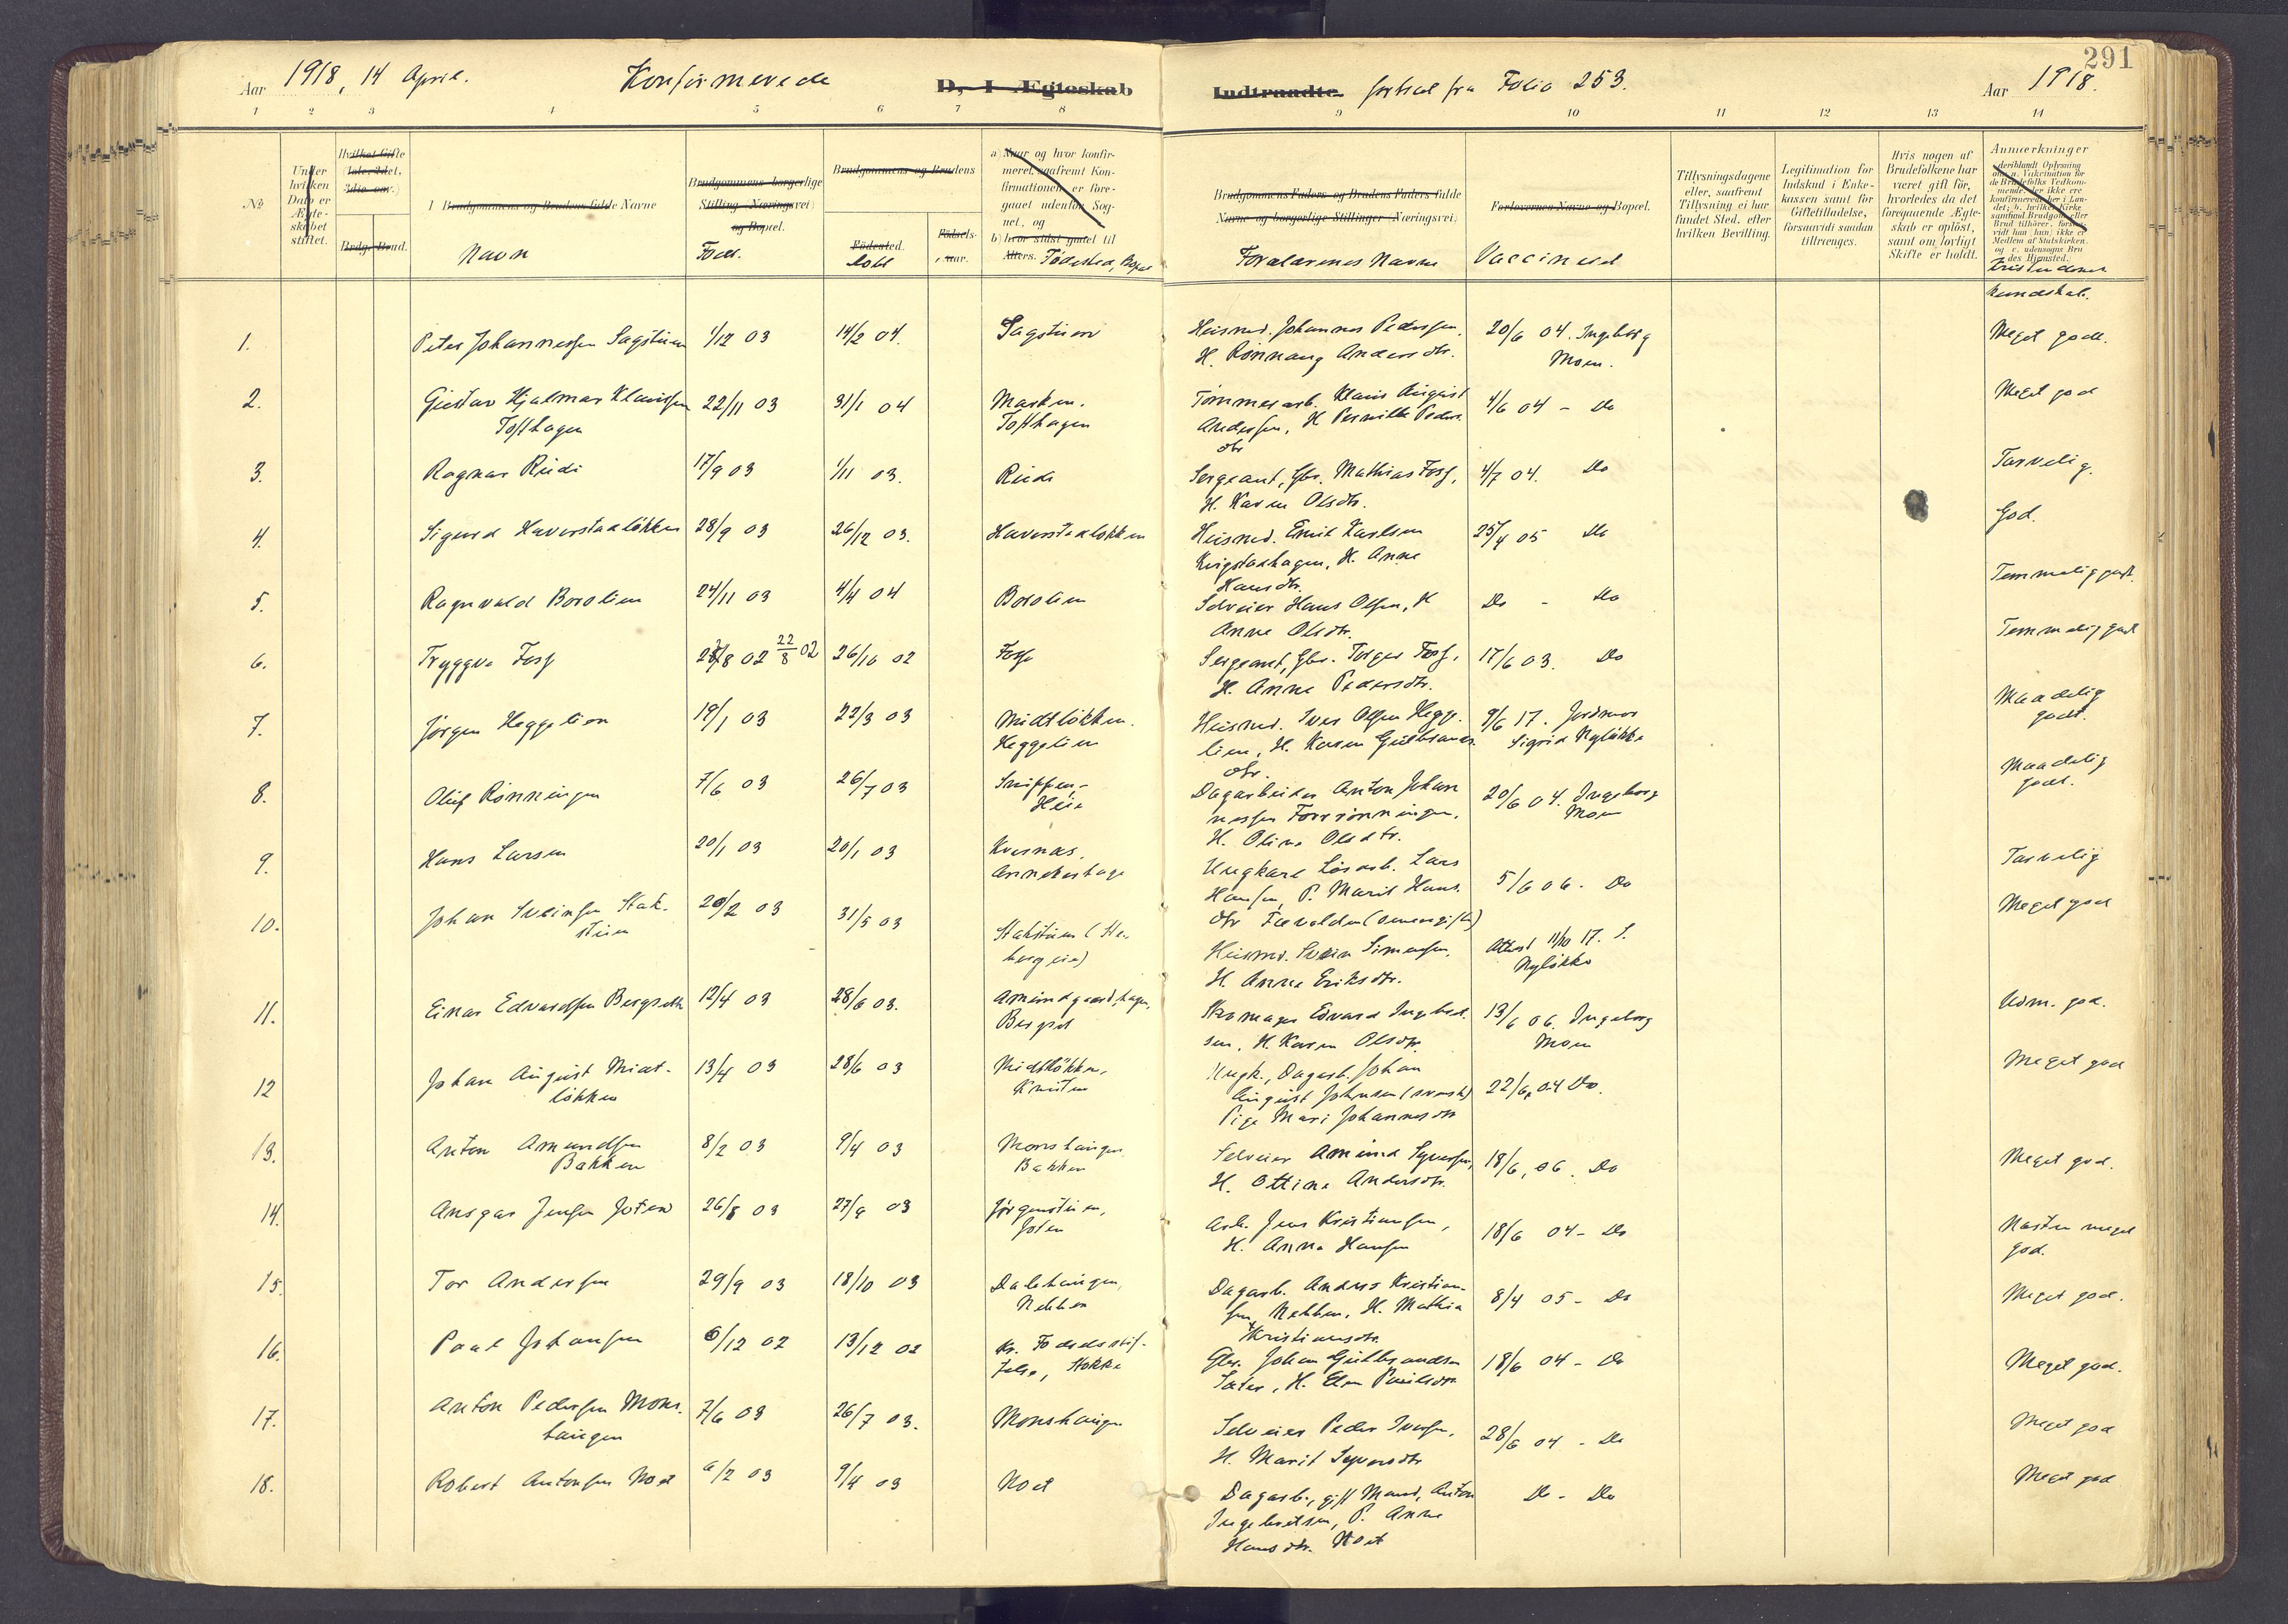 291
Aar 1918, 14 April. Konfirmerede D. I Ægteskab Indtraadte. fortsat fra Folio 253. Aar 1918.
1 2 3 4 5 6 7 8 9 10 11 12 13 14
No
Under hvilken Dato er Ægteskabet stiftet.
Hvilket Gifte (1ste, 2det, 3die osv.)
Brdg. Brud.
1 Brudgommens og Brudens fulde Navne
Navn
Brudgommens borgerlige Stilling (Næringsvei) og Bopæl.
Født.
Brudgommens og Brudens
Födested.
Döbt
Födsels-aar.
a) Naar og hvor konfirmeret, saafremt Konfirmationen er foregaaet udenfor Sognet, og
b) hvor sidst gaaet til Alters. Fødested, Bopæl
Brudgommens Faders og Brudens Faders fulde Navne og borgerlige Stillinger (Næringsvei)
Forældrenes Navne
Forlovernes Navne og Bopæl.
Vaccineret
Tillysningsdagene eller, saafremt Tillysning ei har fundet Sted, efter hvilken Bevilling.
Legitimation for Indskud i Enkekassen samt for Giftetilladelse, forsaavidt saadan tiltrænges.
Hvis nogen af Brudefolkene har været gift før, hvorledes da det foregaaende Ægteskab er opløst, samt om lovligt Skifte er holdt.
Anmærkninger
Kristendoms
kundskab.
1. Peter Johannessen Sagstuen 1/12 03 14/2 04. Sagstuen Husmd. Johannes Pedersen, 20/6 04. Ingeborg Meget godt.
H. Rønnaug Andersdtr. Moen.
2. Gustav Hjalmar Klausen 22/11 03 31/1 04 Marken. Tømmerarb. Klaus August 4/6 04 - Do Meget god
Tofthagen Tofthagen Andersen, H Pernille Peders
dtr
3. Ragnar Rudi 17/9 03 1/11 03. Rudi Sergeant, Gbr. Mathias Foss, 4/7 04. Do Tarvelig.
H. Karen Olsdtr.
4. Sigurd Haverstadløkken 28/9 03 26/12 03. Haverstadløkken Husmd. Emil Karlsen 25/4 05 Do God.
H. Anne
Hansdtr.
5. Ragnvald Borolien 24/11 03 4/4 04 Borolien Selveier Hans Olsen, H Do - Do Temmelig godt.
Anne Olsdtr.
6. Tryggve Foss 28/8 02 22/8 02 26/10 02 Foss Sergeant, Gbr. Torger Foss, 17/6 03. Do Temmelig godt
H. Anne Pedersdtr.
7. Jørgen Heggelien 19/1 03 22/3 03 Midtløkken. Husmd. Iver Olsen Hegge- 9/6 17. Jordmor Maadelig
Heggelien lien, H. Karen Gulbrands Sigrid Nyløkke godt.
dtr.
8. Oluf Rønningen 7/6 03 26/7 03 Snippen- Dagarbeider Anton Johan 20/6 04. Ingeborg Maadelig
Hue nessen H. Oline Olsdtr. Moen godt.
9. Hans Larsen 20/1 03 20/1 03 Kvernes, Ungkarl Løsarb. Lars 5/6 06. Do Tarvelig
Hansen, P. Marit Hans-
dtr
10. Johan Sveinsen Stak- 20/2 03 31/5 03 Stakstuen Husmd. Svein Simensen, Attest 11/10 17. S. Meget god
stuen H. Anne Eriksdtr. Nyløkke
11. Einar Edvardsen Bergseth 12/4 03 28/6 03. Amundgaardshagen, Skomager Edvard Ingebret- 13/6 06. Ingeborg Udm. god.
Berget sen, H. Karen Olsdtr. Moen
12 Johan August Midt- 13/4 03 28/6 03 Midtløkken, Ungk., Dagarb. Johan 22/6, 04 Do. Meget god
løkken Knuten August Johnsen (svensk)
Pige Mari Johannesdtr
13. Anton Amundsen 8/2 03 9/4 03 Monshaugen Selveier Amund Syversen, 18/6, 06. Do Meget god.
Bakken Bakken H. Ottine Andersdtr.
14. Ansgar Jensen Joten 26/8 03 27/9 03 Jørgenstuen, Arb. Jens Kristiansen, 18/6 04 - Do Næsten meget
Joten H. Anna Hansen god.
15. Tor Andersen 29/9 03 18/10 03 Dalehaugen, Dagarb. Anders Kristian- 8/4 05 - Do Meget god.
Nebben sen Nebben, H. Mathia
Kristiansdtr.
16. Paul Johansen 6/12 02 13/12 02 Kr. Fødselsstif- Gbr. Johan Gulbrandsen 18/6 04 - Do Meget god.
telse, Hokke Sæter, H. Elen Paulsdtr
17. Anton Pedersen Mons- 7/6 03 26/7 03. Monshaugen Selveier Peder Iversen, 28/6 04 - Do Meget god
haugen H. Marit Syversdtr
18. Robert Antonsen Noet 6/2 03 9/4 03 Noet Dagarb., gift Mand, Anton Do - Do Meget god
Ingebretsen, P. Anne
Hansdtr. Noet